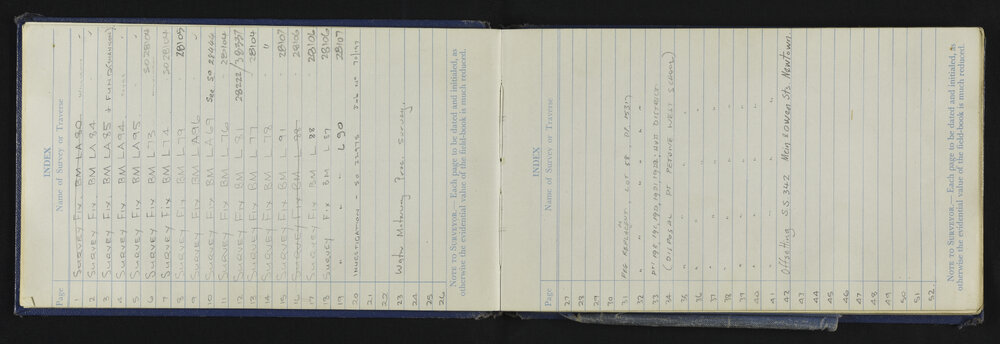 INDEX
Page Name of Survey or Traverse
1 SURVEY FIX BM LA80
2 SURVEY FIX BM LA84
3 SURVEY FIX BM LA85 +
4 SURVEY FIX BM LA94
5 SURVEY FIX BM LA95
6 SURVEY FIX BM L73 SO28104
7 SURVEY FIX BM L74 SO28104
8 SURVEY FIX BM L79 28105
9 SURVEY FIX BM LA96
10 SURVEY FIX BM LA69 See SO
11 SURVEY FIX BM L76 28104
12 SURVEY FIX BM L81 28222/28337
13 SURVEY FIX BM L77 28104
14 SURVEY FIX BM L78 "
15 SURVEY FIX BM L91 28107
16 SURVEY FIX BM 28106
17 SURVEY FIX BM L88 28106
18 SURVEY FIX BM L89 28106
19 " " L90 28107
20 INVESTIGATION - SO
21
22
23 Water Motorway Pres. Survey.
24
25
26
NOTE TO SURVEYOR.—Each page to be dated and initialed, as
otherwise the evidential value of the field-book is much reduced.
INDEX
Page Name of Survey or Traverse
27
28
29
30
31 PEG REPLACEMENT LOT 58 DP 15317
32 " " "
33 Pt HUTT DISTRICT
34 (DISPOSAL PT WEST SCHOOL)
35 " "
36 " "
37 " "
38 " "
39 " "
40 " "
41 " "
42 Offsetting S.S. 342 Mein & Owen Sts. Newtown.
43
44
45
46
47
48
49
50
51
52
NOTE TO SURVEYOR.—Each page to be dated and initialed, as
otherwise the evidential value of the field-book is much reduced.